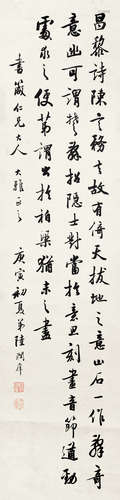 昌黎詩陳言務去故有倚天拔地之意山石一作辭奇
意幽可謂楚辭招隱士對當於意匠刻畫音節遒勁
處求之使第謂出於柏梁猶未之盡
書箴仁兄大人大雅正之
庚寅初夏弟陸潤庠